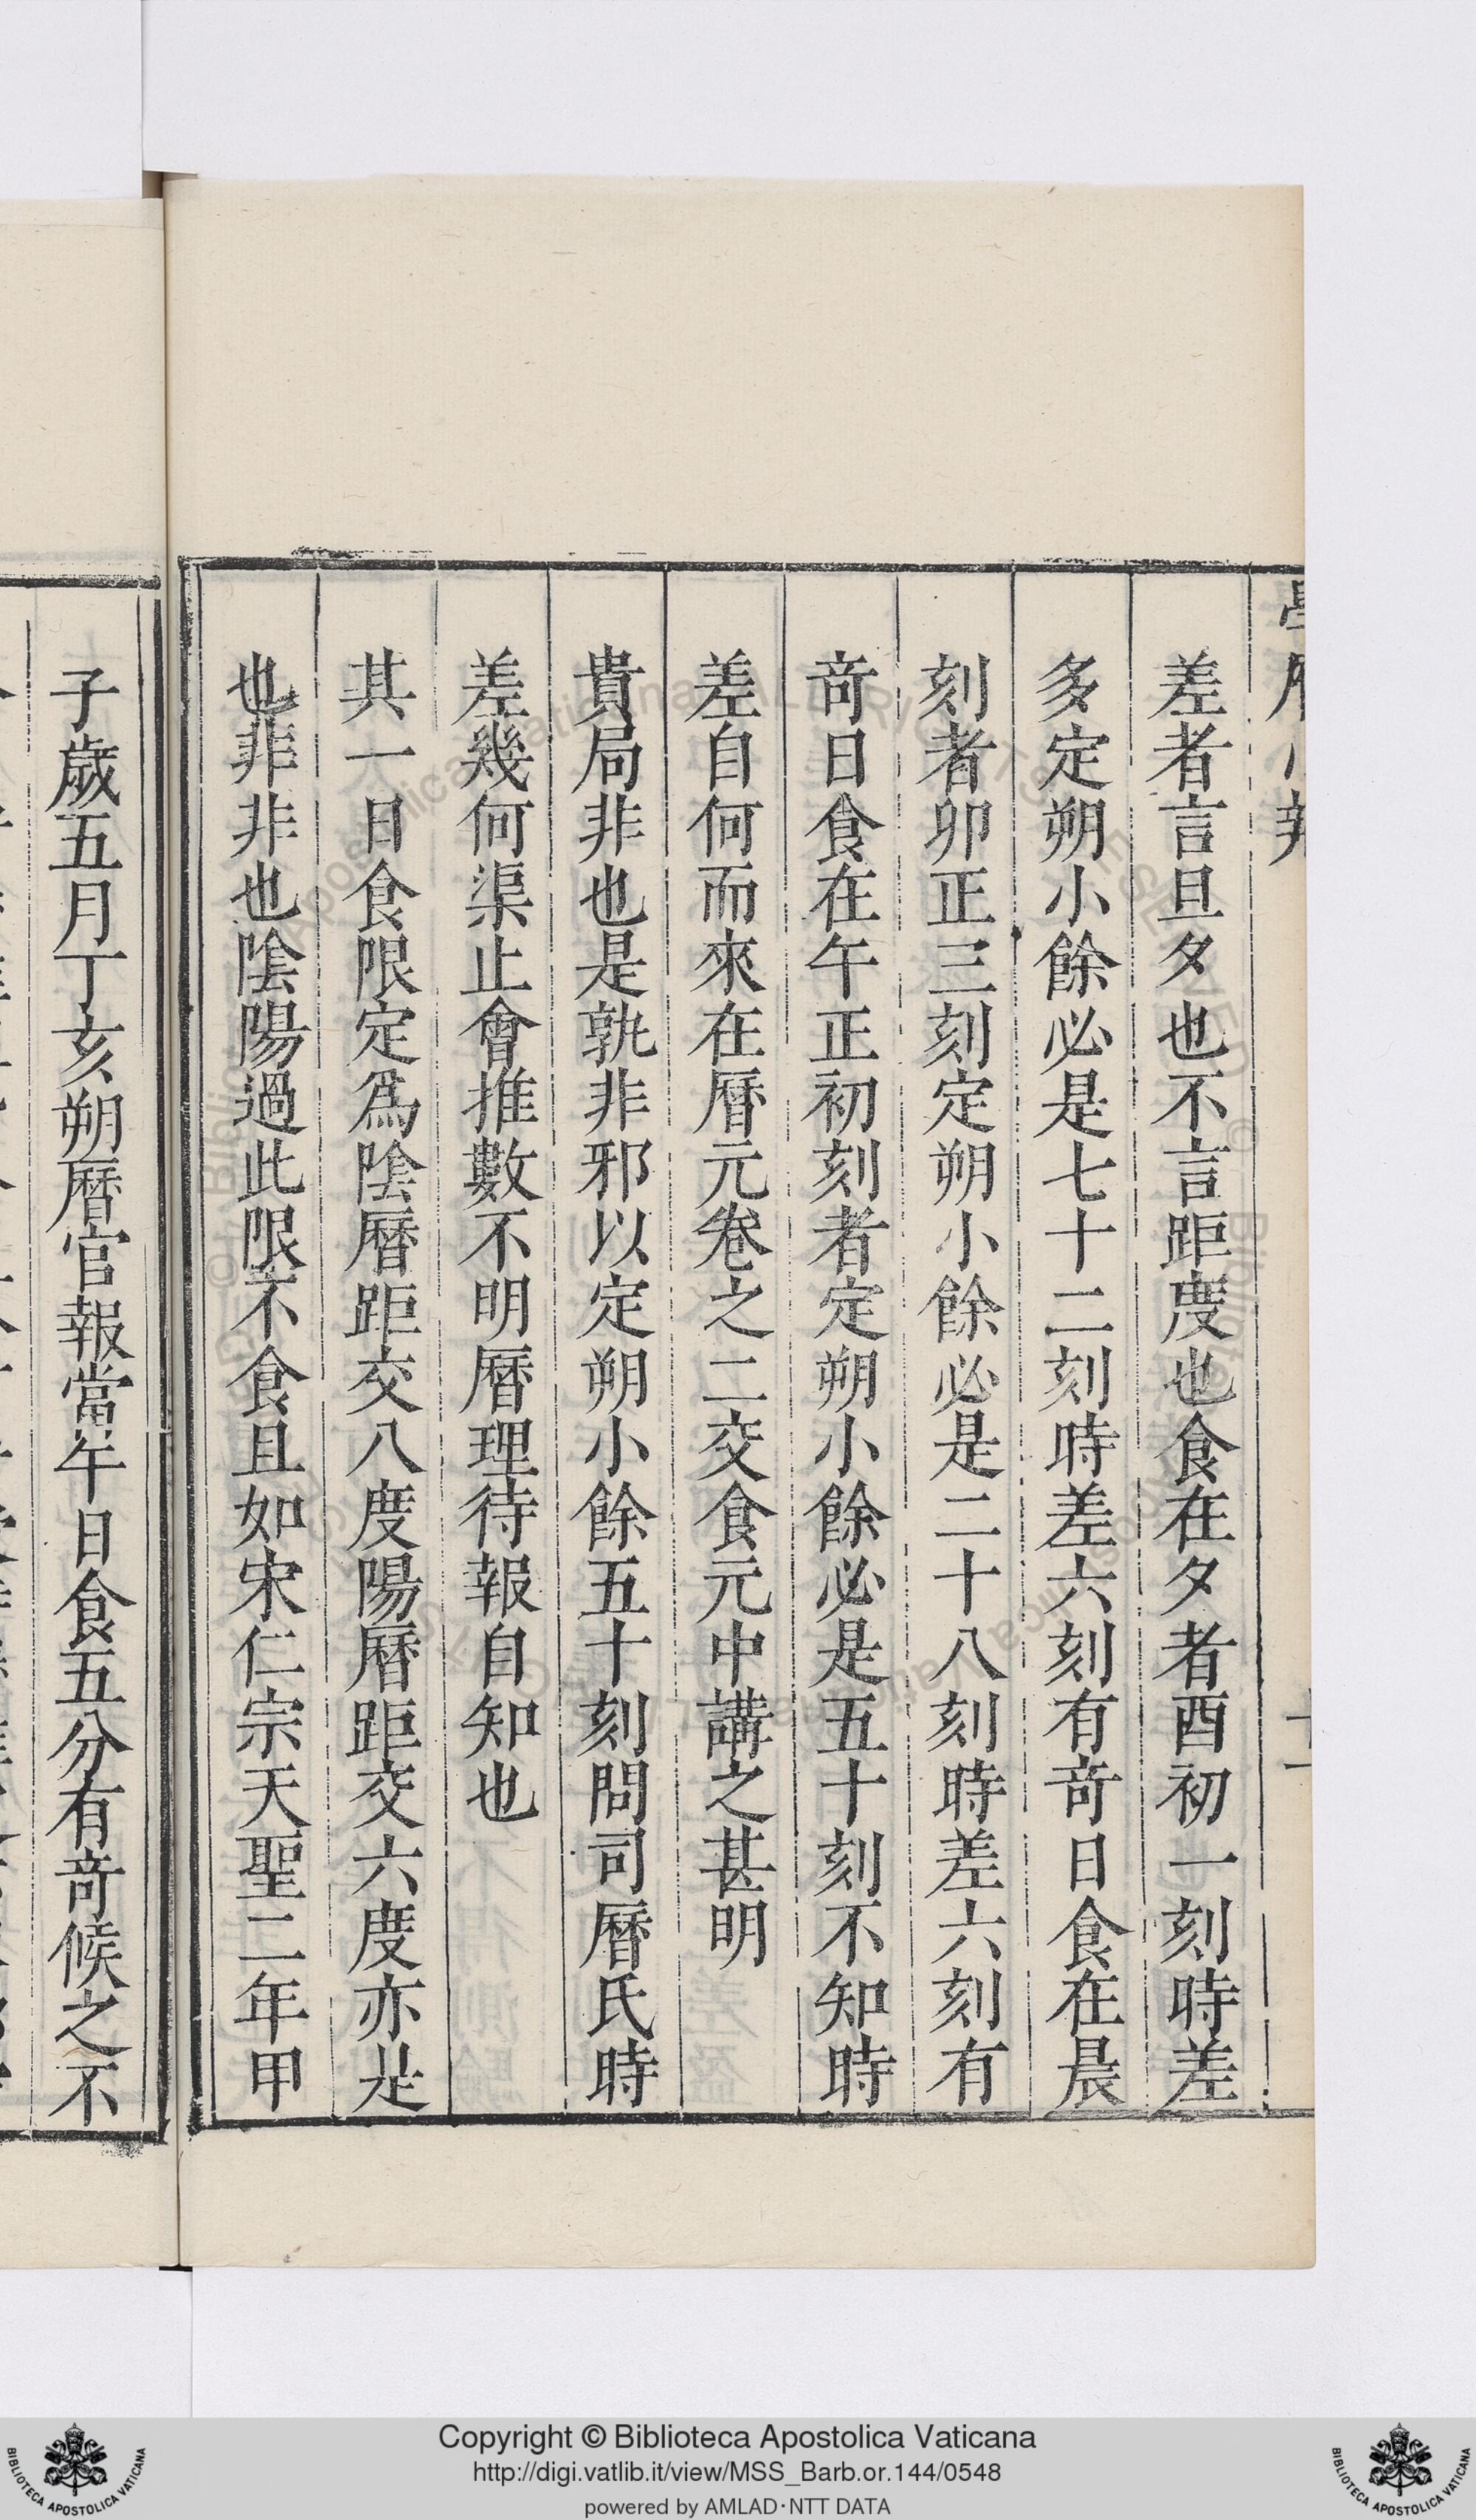 差者言旦夕也不言距度也食在夕者酉初一刻時差
多定朔小餘必是七十二刻時差六刻有竒日食在晨
刻者卯正三刻定朔小餘必是二十八刻時差六刻有
竒日食在午正初刻者定朔小餘必是五十刻不知時
差自何而來在曆元卷之二交食元中講之甚明
貴局非也是孰非邪以定朔小餘五十刻問司曆氏時
差幾何渠止會推數不明曆理待報自知也
其一日食限定爲陰曆距交八度陽曆距交六度亦是
也非非也陰陽過此限不食且如宋仁宗天聖二年甲
子歲五月丁亥朔曆官報當午日食五分有竒候之不
Copyright © Biblioteca Apostolica Vaticana
http://digi.vatlib.it/view/MSS_Barb.or.144/0548
powered by AMLAD·NTT DATA
BIBLIOTECA APOSTOLICA VATICANA
BIBLIOTECA APOSTOLICA VATICANA